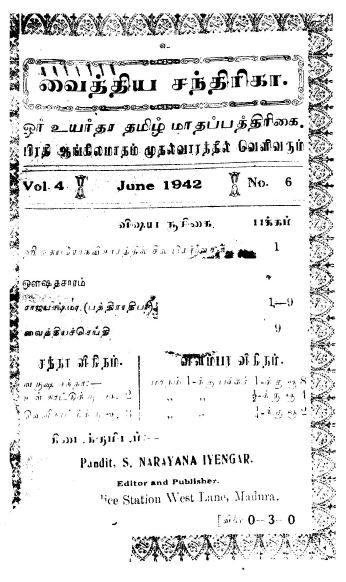 வைத்திய சந்திரிகா.
ஓர் உயர்தர தமிழ் மாதப்பத்திரிகை.
பிரதி ஆங்கிலமாதம் முதல்வாரத்தில் வெளிவரும்
Vol. 4 June 1942 No. 6
விஷய சூசிகை. பக்கம்
1
ஔஷதசாரம்
ராஜயக்ஷ்மா (பத்திராதிபர்) 1—9
வைத்தியச்செய்தி 9
சந்தா விகிதம். விளம்பர விகிதம்.
வருஷ சந்தா:—
மாதம் 1-க்கு பக்கம் 1-க்கு ரூ 8
உள்நாட்டுக்கு ரூ 2 „ „ ½-க்கு ரூ 4
வெளிநாட்டுக்கு ரூ 3 „ „ ¼-க்கு ரூ 2
கிடைக்குமிடம்:—
Pandit, S. NARAYANA IYENGAR.
Editor and Publisher.
Station West Lane, Madura.
[விலை 0—3—0